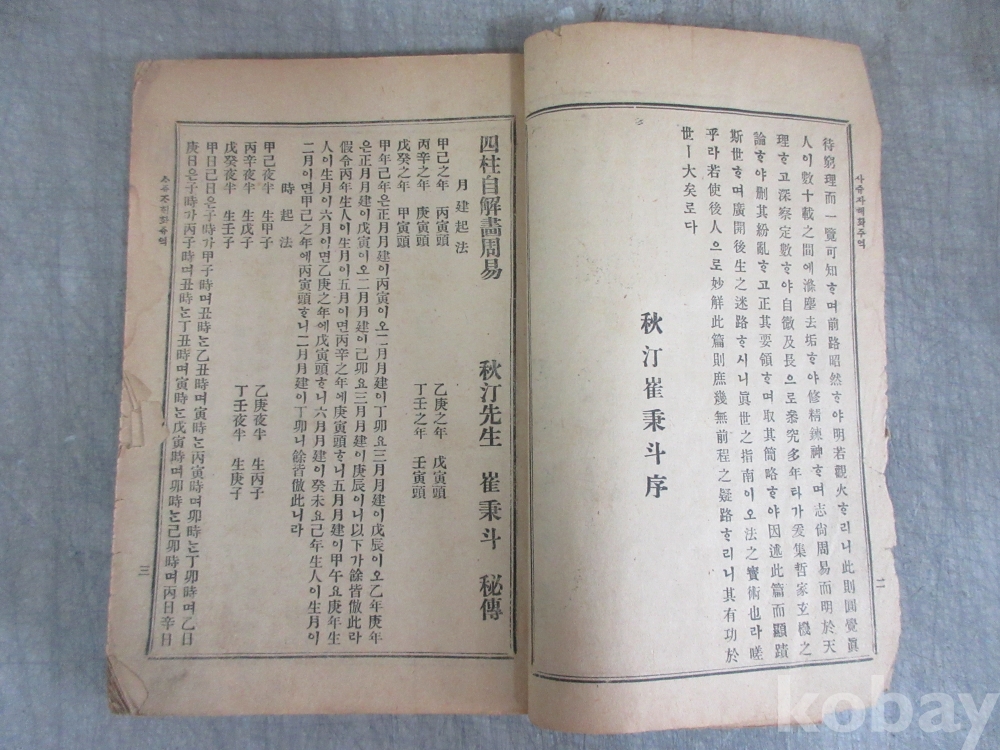 사주자해화주역
待窮理而一覽可知ᄒᆞ며前路昭然ᄒᆞ야明若觀火ᄒᆞ리니此則圓覺眞
人이數十載之間에滌塵去垢ᄒᆞ야修精鍊神ᄒᆞ며志尙周易而明於天
理ᄒᆞ고深察定數ᄒᆞ야自微及長으로叅究多年타가爰集哲家玄機之
論ᄒᆞ야刪其紛亂ᄒᆞ고正其要領ᄒᆞ며取其簡略ᄒᆞ야因述此篇而顯蹟
斯世ᄒᆞ며廣開後生之迷路ᄒᆞ시니眞世之指南이오法之寶術也라嗟
乎라若使後人으로妙解此篇則庶幾無前程之疑路ᄒᆞ리니其有功於
世ㅣ大矣로다
秋汀崔秉斗序
二
四柱自解畵周易 秋汀先生 崔秉斗 秘傳
月建起法
甲己之年 丙寅頭 乙庚之年 戊寅頭
丙辛之年 庚寅頭 丁壬之年 壬寅頭
戊癸之年 甲寅頭
甲年己年은正月月建이丙寅이오二月月建이丁卯요三月月建이戊辰이오乙年庚年
은正月月建이戊寅이오二月月建이己卯요三月月建이庚辰이니以下가餘皆倣此라
假令丙年生人이生月이五月이면丙辛之年에庚寅頭ᄒᆞ니五月月建이甲午요庚年生
人이生月이六月이면乙庚之年에戊寅頭ᄒᆞ니六月月建이癸未요己年生人이生月이
二月이면甲己之年에丙寅頭ᄒᆞ니二月月建이丁卯니餘皆倣此니라
時起法
甲己夜半 生甲子 乙庚夜半 生丙子
丙辛夜半 生戊子 丁壬夜半 生庚子
戊癸夜半 生壬子
甲日己日은子時가甲子時며丑時는乙丑時며寅時는丙寅時며卯時는丁卯時며乙日
庚日은子時가丙子時며丑時는丁丑時며寅時는戊寅時며卯時는己卯時며丙日辛日
三
kobay